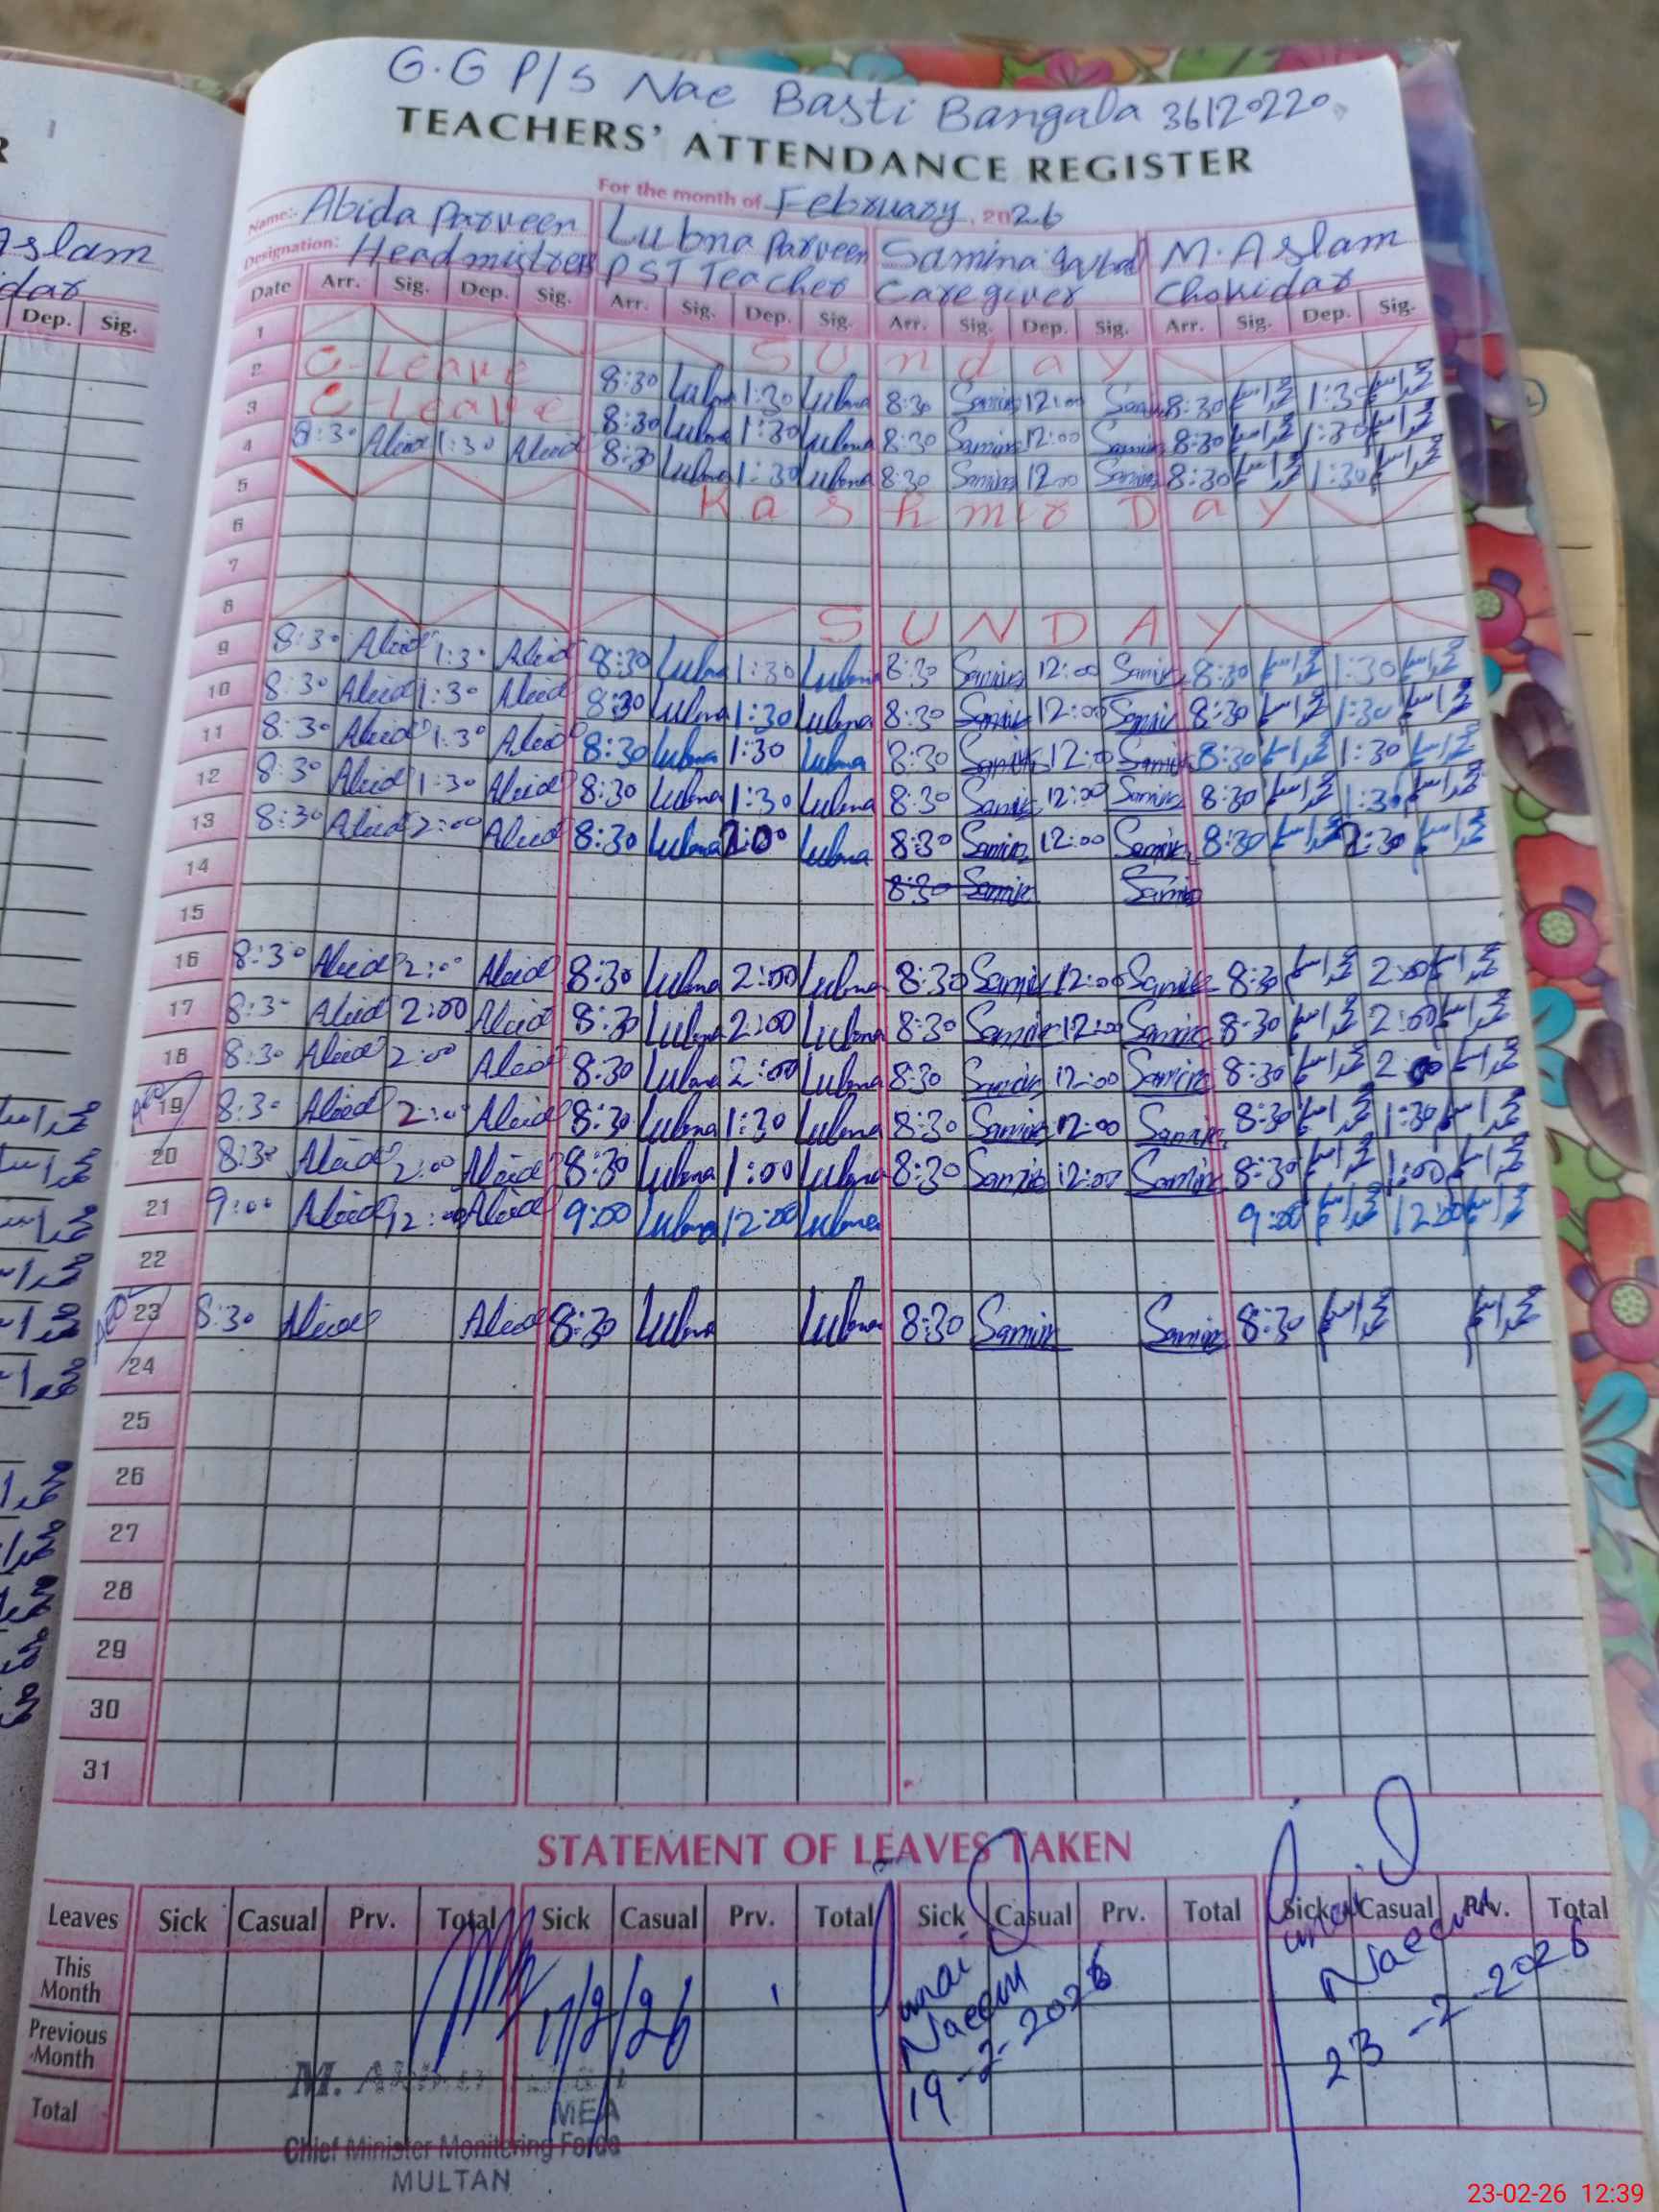 G.G P/S Nae Basti Bangala 36120220
TEACHERS' ATTENDANCE REGISTER
For the month of February 2026
Name:- Abida Parveen Lubna Parveen Samina M. Aslam
Designation: Headmistres PST Teacher Care giver Chokidar
Date Arr. Sig. Dep. Sig. Arr. Sig. Dep. Sig. Arr. Sig. Dep. Sig. Arr. Sig. Dep. Sig.
1 Sunday
2 C-Leave 8:30 Lubna 1:30 Lubna 8:30 Samina 12:00 Samina 8:30 1:30
3 C-Leave 8:30 Lubna 1:30 Lubna 8:30 Samina 12:00 Samina 8:30 1:30
4 8:30 Abid 1:30 Abid 8:30 Lubna 1:30 Lubna 8:30 Samina 12:00 Samina 8:30 1:30
5 Kashmir Day
6
7
8 SUNDAY
9 8:30 Abid 1:30 Abid 8:30 Lubna 1:30 Lubna 8:30 Samina 12:00 Samina 8:30 1:30
10 8:30 Abid 1:30 Abid 8:30 Lubna 1:30 Lubna 8:30 Samina 12:00 Samina 8:30 1:30
11 8:30 Abid 1:30 Abid 8:30 Lubna 1:30 Lubna 8:30 Samina 12:00 Samina 8:30 1:30
12 8:30 Abid 1:30 Abid 8:30 Lubna 1:30 Lubna 8:30 Samina 12:00 Samina 8:30 1:30
13 8:30 Abid 2:00 Abid 8:30 Lubna 2:00 Lubna 8:30 Samina 12:00 Samina 8:30 2:30
14 8:30 Samina Samina
15
16 8:30 Abid 2:00 Abid 8:30 Lubna 2:00 Lubna 8:30 Samina 12:00 Samina 8:30 2:00
17 8:30 Abid 2:00 Abid 8:30 Lubna 2:00 Lubna 8:30 Samina 12:00 Samina 8:30 2:00
18 8:30 Abid 2:00 Abid 8:30 Lubna 2:00 Lubna 8:30 Samina 12:00 Samina 8:30 2:00
AEO 19 8:30 Abid 2:00 Abid 8:30 Lubna 1:30 Lubna 8:30 Samina 12:00 Samina 8:30 1:30
20 8:30 Abid 2:00 Abid 8:30 Lubna 1:00 Lubna 8:30 Samina 12:00 Samina 8:30 1:00
21 9:00 Abid 12:00 Abid 9:00 Lubna 12:00 Lubna 9:00 12:00
22
AEO 23 8:30 Abid Abid 8:30 Lubna Lubna 8:30 Samina Samina 8:30
24
25
26
27
28
29
30
31
STATEMENT OF LEAVES TAKEN
Leaves Sick Casual Prv. Total Sick Casual Prv. Total Sick Casual Prv. Total Sick Casual Prv. Total
This Month
Previous Month
Total
17/2/26
Naeem
19-2-2026
Naeem
23-2-2026
MEA
Chief Minister Monitoring Force
MULTAN
Aslam
dar
Dep. Sig.
23-02-26 12:39